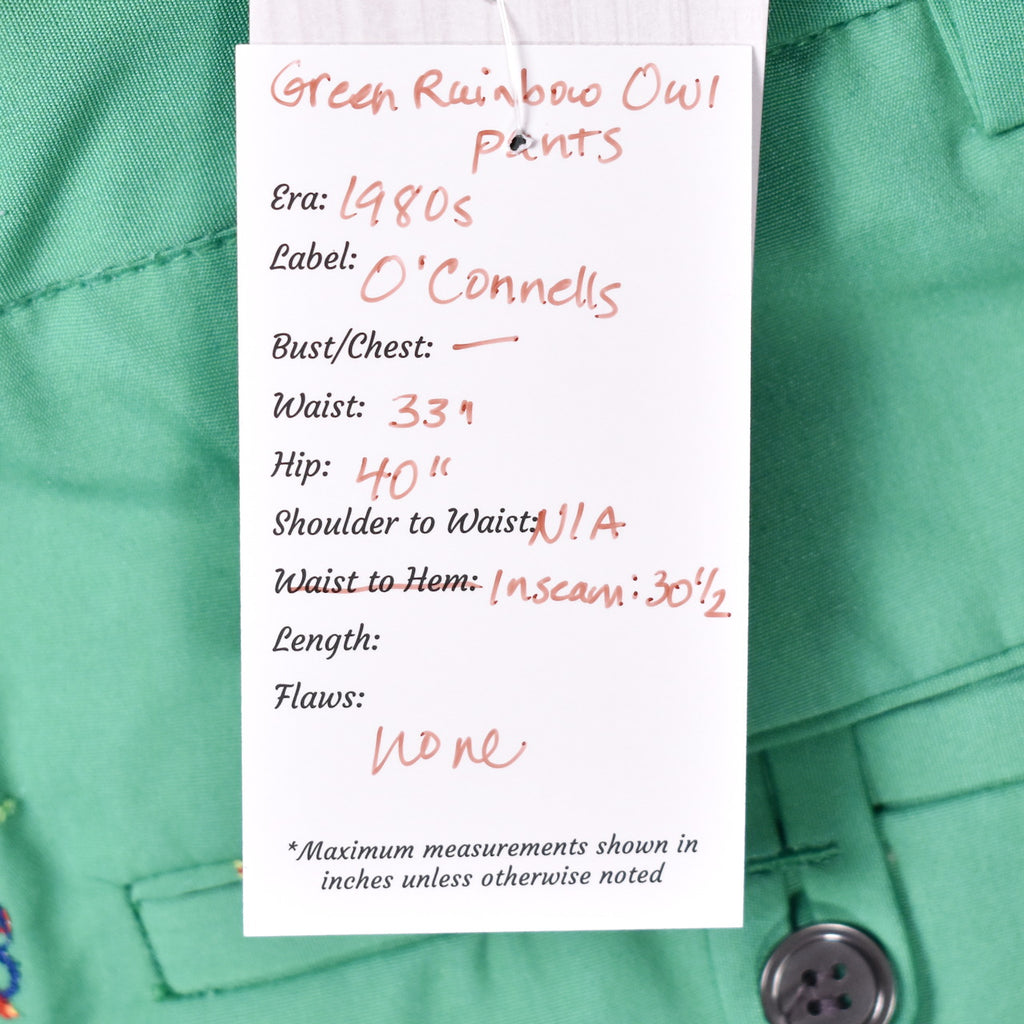 Green Rainbow Owl
pants
Era: 1980s
Label: O'Connells
Bust/Chest: —
Waist: 33"
Hip: 40"
Shoulder to Waist: N/A
Waist to Hem: Inseam: 30 1/2
Length:
Flaws:
none
*Maximum measurements shown in
inches unless otherwise noted